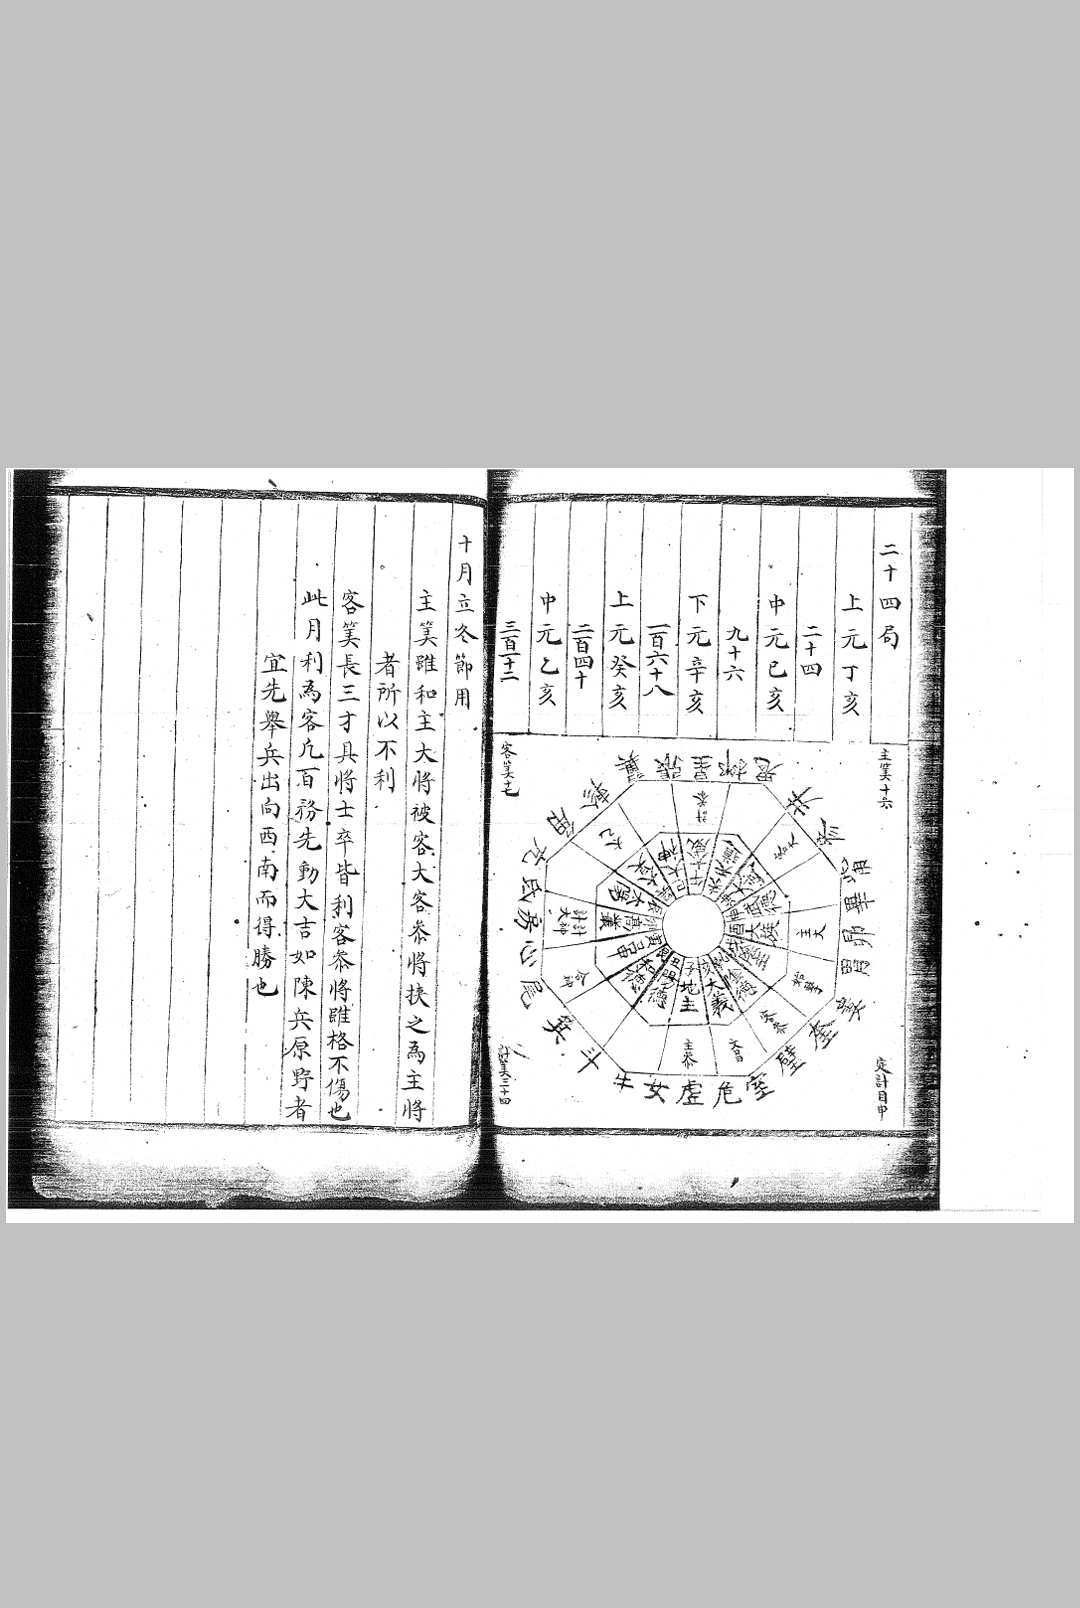 二十四局
上元丁亥
二十四
中元己亥
九十六
下元辛亥
一百六十八
上元癸亥
二百四十
中元乙亥
三百十二
主筭十六
客筭十七
定計目申
計筭三十四
井
觜
畢
昴
胃
婁
奎
壁
室
危
虛
女
牛
斗
箕
尾
心
房
氐
亢
角
軫
翼
張
星
柳
鬼
主大
客參
文昌
主參
太乙
地主
陽德
大義
陰德
十月立冬節用
主筭雖和主大將被客大客叅將挾之為主將
者所以不利
客筭長三才具將士卒皆利客叅將雖格不傷也
此月利為客凢百務先動大吉如陳兵原野者
宜先舉兵出向西南而得勝也